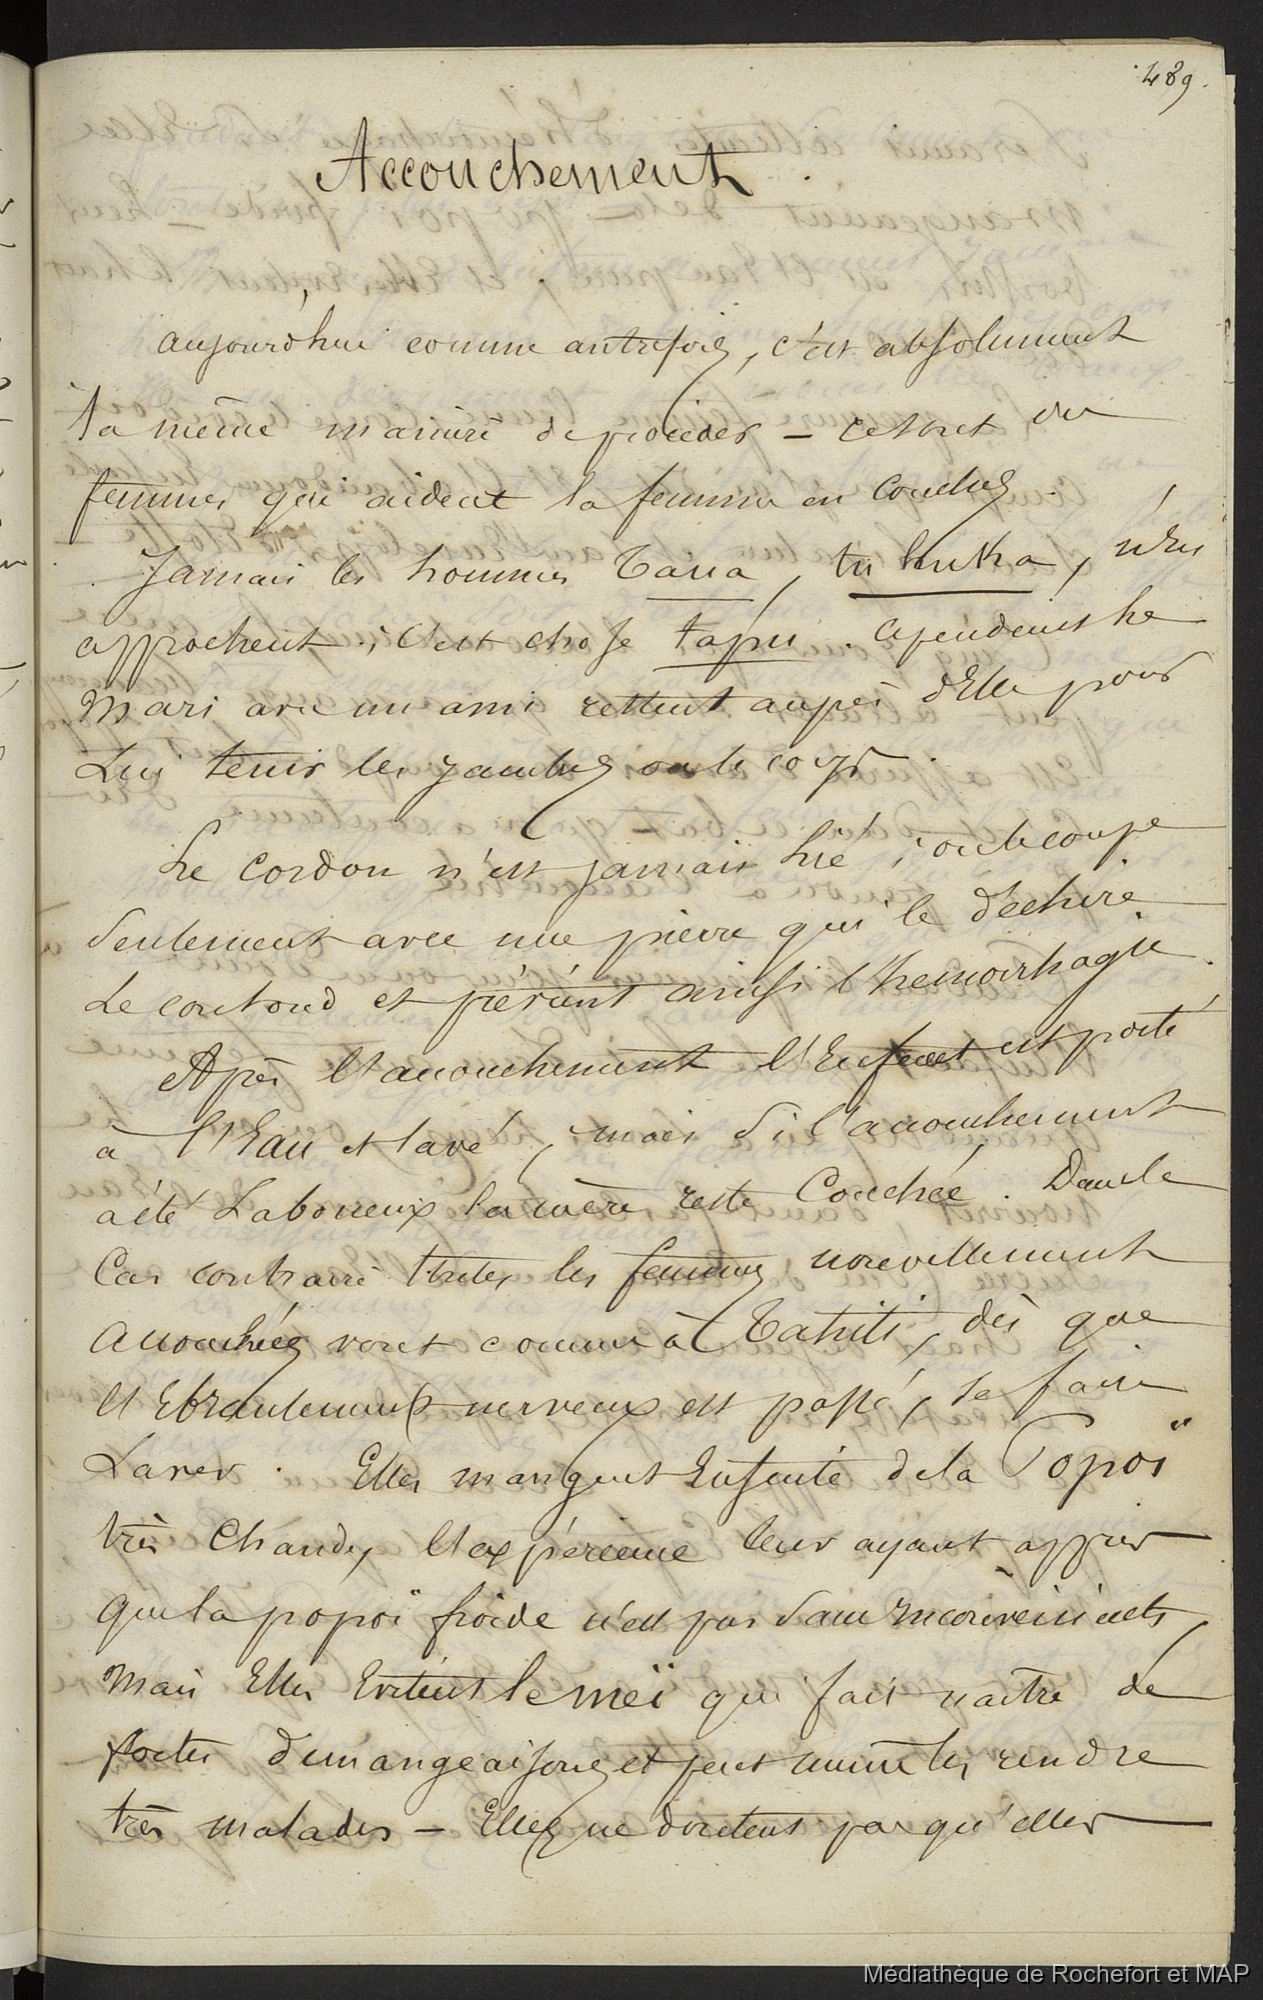 489.
Accouchement.
aujourd'hui comme autrefois, c'est absolument
la même manière de procéder – ce sont des
femmes qui aident la femme en couches.
Jamais les hommes Taua, tu huka, n'en
approchent ; c'est chose tapu. cependant le
mari avec un ami restent auprès d'Elle pour
Lui tenir les jambes ou le corps.
Le cordon n'est jamais lié ; on le coupe
Seulement avec une pierre qui le déchire
Le contond et prévient ainsi l'hemorrhagie.
Après l'accouchement l'Enfant est porté
à l'Eau et lavé, mais si l'accouchement
a été Laborieux la mère reste Couchée. Dans le
Cas contraire toutes les femmes nouvellement
accouchées vont comme à Tahiti, dès que
l'Ebranlement nerveux est passé, se faire
Laver. Elles mangent Ensuite de la Popoï
très Chaude, l'expérience leur ayant appris
que la popoï froide n'est pas sans inconvénients,
mais Elles Evitent le meï qui fait naître de
fortes demangeaisons et peut même les rendre
très malades – Elles ne doutent pas qu'elles
Médiathèque de Rochefort et MAP